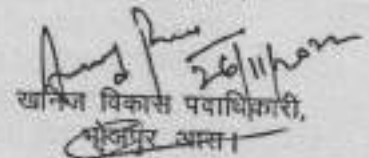 26/11/2022
खनिज विकास पदाधिकारी,
भोजपुर आरा।